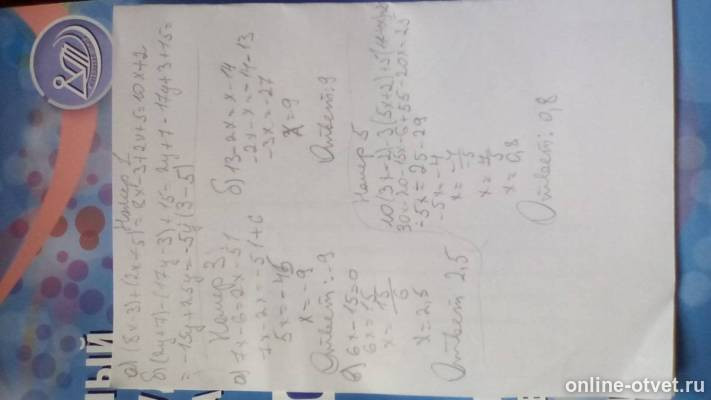 Номер 1
а) (8x-3)+(2x+5)=8x-3+2x+5=10x+2
б) (2y+7)-(17y-3)+15=2y+7-17y+3+15=
=-15y+25y=-5y(3-5)
Номер 3
а) 7x-6=2x-51
7x-2x=-51+6
5x=-45
x=-9
Ответ:-9
б) 13-2x=x-14
-2x-x=-14-13
-3x=-27
x=9
Ответ:9
в) 6x-15=0
6x=15
x=15/6
x=2,5
Ответ 2,5
Номер 5
10(3x-2)-3(5x+2)+5(
30x-20-15x-6+55-20x=25
-5x=25-29
-5x=-4
x=-4/-5
x=4/5
x=0,8
Ответ: 0,8
НЫЙ
online-otvet.ru